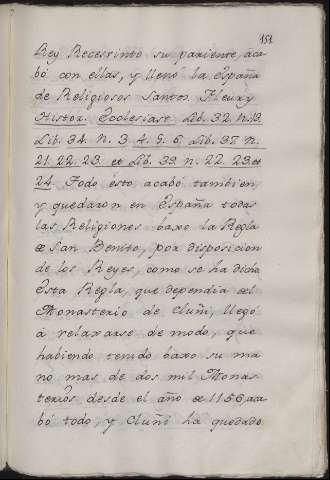 151
Rey Recesvinto su pariente, aca-
bó con ellas, y llenó la España
de Religiosos Santos. Fleury
Histor. Ecclesiast. Lib. 32. n. 13.
Lib. 34. n. 3. 4. 5. 6. Lib. 37. n.
21. 22. 23. et Lib. 39. n. 22. 23. et
24. Todo ésto acabó tambien,
y quedaron en España todas
las Religiones baxo la Regla
de San Benito, por disposicion
de los Reyes, como se ha dicho
Esta Regla, que dependia del
Monasterio de Cluñi, llegó
à relaxarse de modo, que
habiendo tenido baxo su ma
no mas de dos mil Monas-
terios desde el año de 1156, aca
bó todo, y Cluñi ha quedado